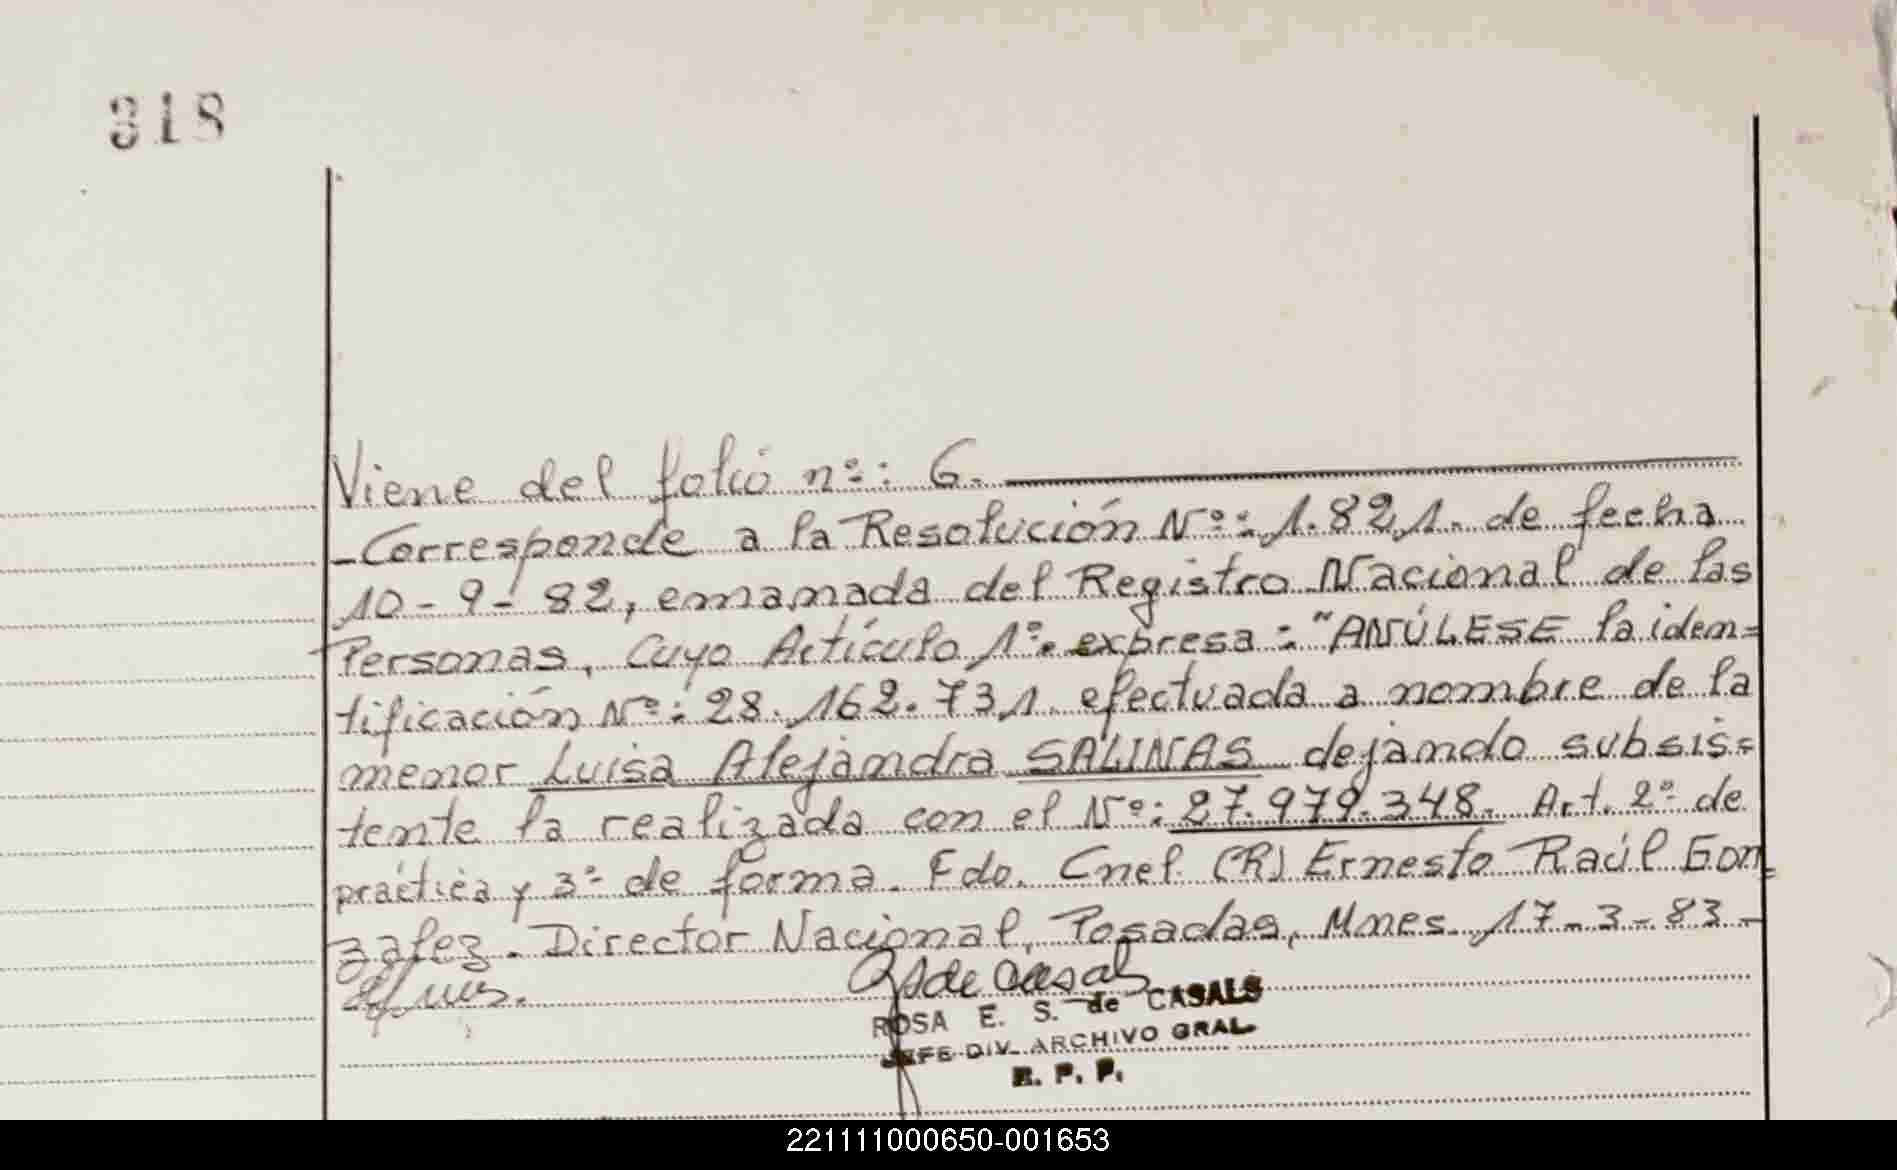 318
Viene del folio nº: 6.
-Corresponde a la Resolución Nº: 1.821. de fecha
10-9-82, emanada del Registro Nacional de las
Personas, Cuyo Artículo 1º. expresa: "ANÚLESE la iden=
tificación Nº: 28.162.731. efectuada a nombre de la
menor Luisa Alejandra SALINAS dejando subsis=
tente la realizada con el Nº: 27.979.348. Art. 2º de
práctica y 3º de forma. Fdo. Cnel. (R) Ernesto Raúl Gon=
zalez. Director Nacional, Posadas, Mnes. 17-3-83-
ROSA E. S. de CASALS
JEFE DIV. ARCHIVO GRAL.
R. P. P.
221111000650-001653